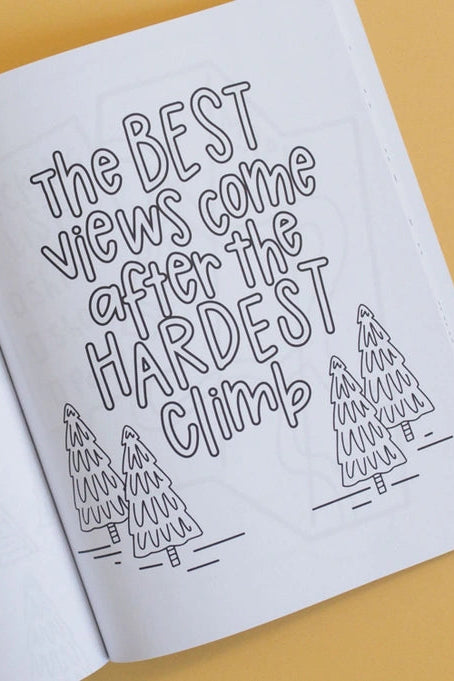 The BEST
views come
after the
HARDEST
climb